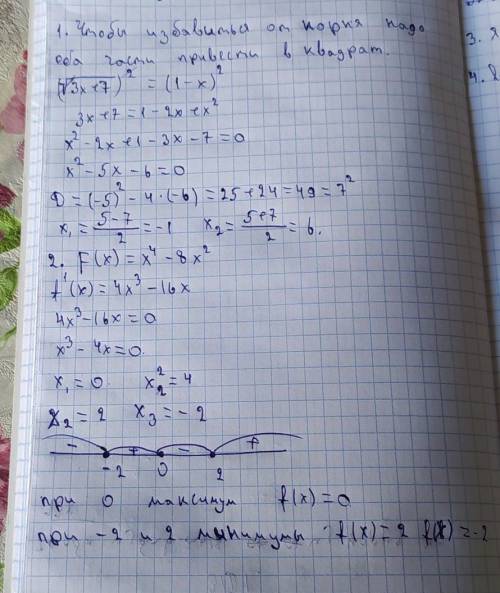 1. Чтобы избавиться от корня надо
оба части привести в квадрат.
(√3x+7)² = (1-x)²
3x+7=1-2x+x²
x²-2x+1-3x-7=0
x²-5x-6=0
D=(-5)²-4·(-6)=25+24=49=7²
x₁=(5-7)/2=-1 x₂=(5+7)/2=6.
2. F(x)=x⁴-8x²
f'(x)=4x³-16x
4x³-16x=0
x³-4x=0.
x₁=0 x₂²=4
x₂=2 x₃=-2
- + - +
-2 0 2
при 0 максимум f(x)=0
при -2 и 2 минимумы f(x)=2 f(x)=-2
3. Я
4.